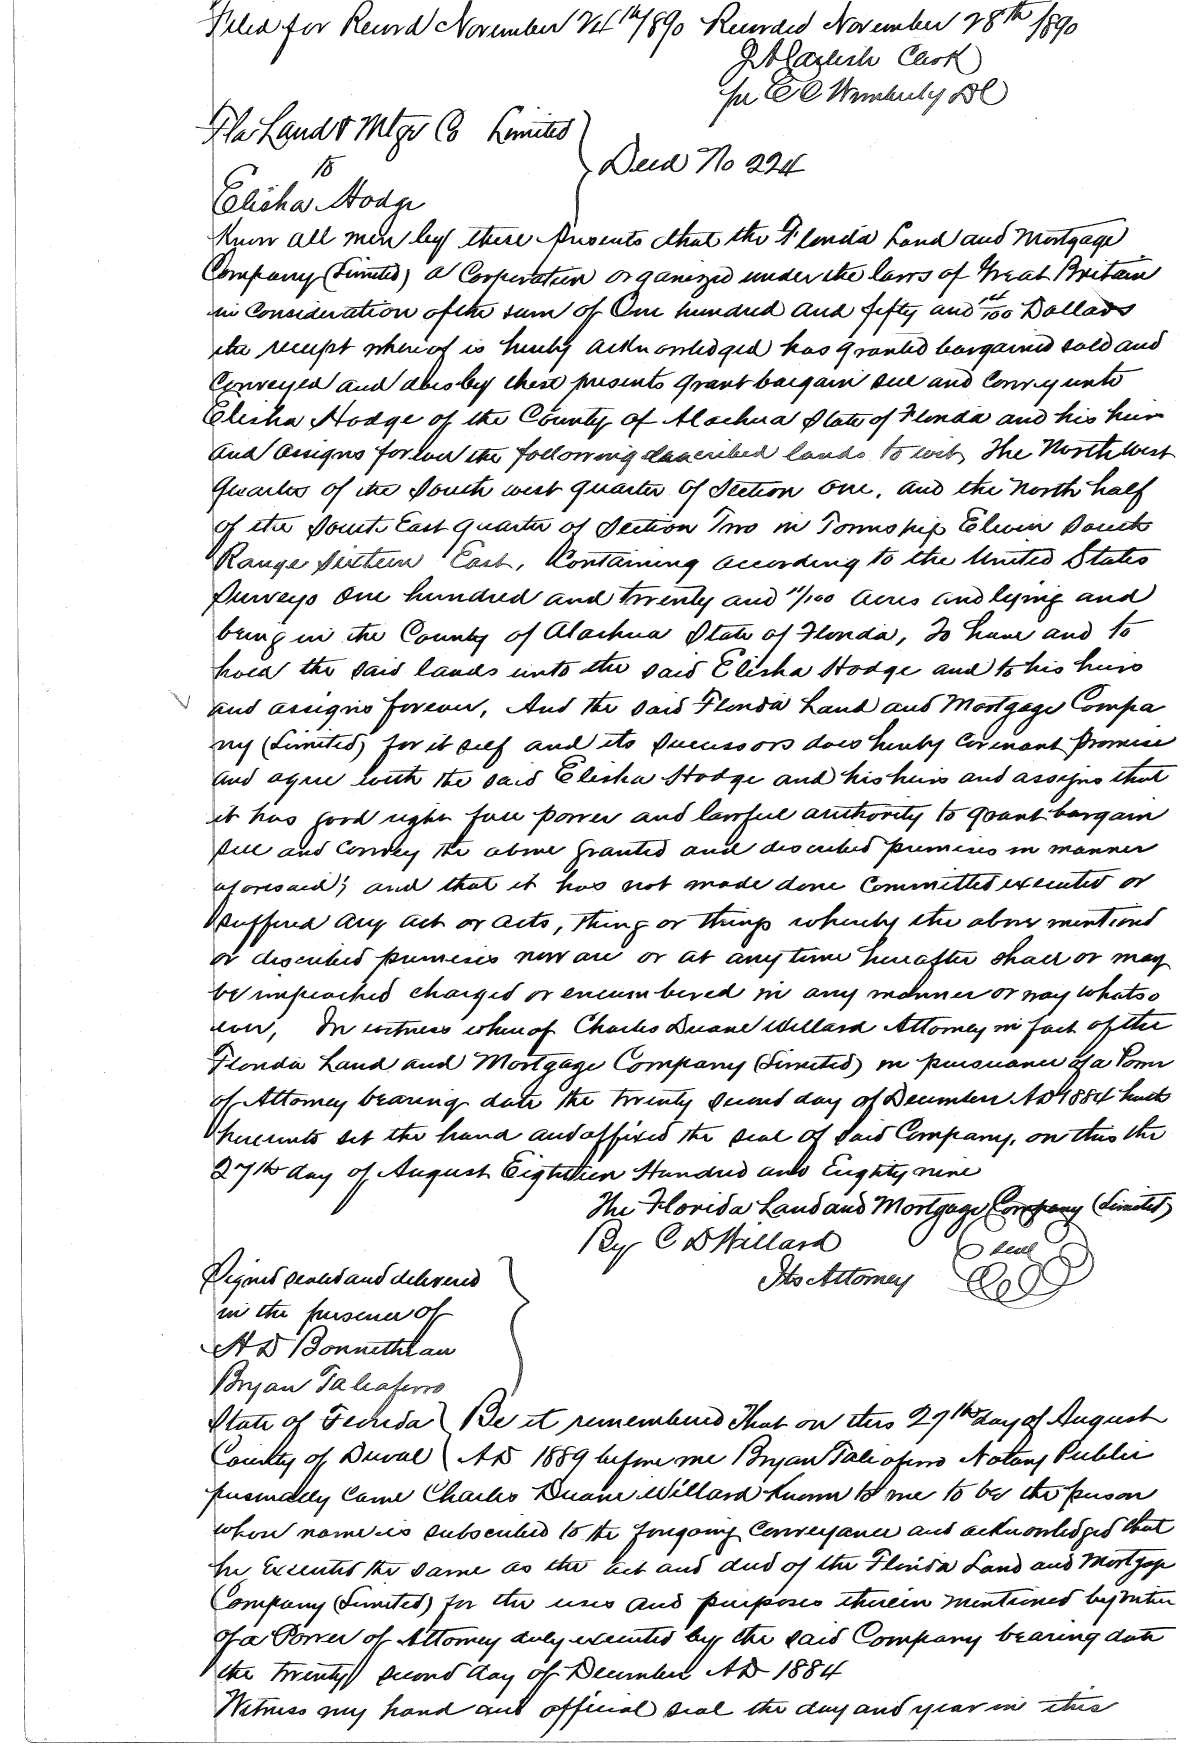 Filed for Record November 24th 1890 Recorded November 28th 1890
J A Carlisle Clerk
per E C Wimberly DC
Fla Land & Mtge Co Limited
to
Deed No 224
Elisha Hodge
Know all men by these presents that the Florida Land and Mortgage
Company (Limited) a Corporation organized under the laws of Great Britain
in consideration of the sum of One hundred and fifty and /100 Dollars
the receipt whereof is hereby acknowledged has granted bargained sold and
Conveyed and does by these presents grant bargain sell and Convey unto
Elisha Hodge of the County of Alachua State of Florida and his heirs
and assigns forever the following described lands to wit, The North west
quarter of the South west quarter of Section one, and the north half
of the South East quarter of Section Two in Township Eleven South
Range Sixteen East, Containing according to the United States
Surveys One hundred and twenty and /100 acres and lying and
being in the County of Alachua State of Florida, To have and to
hold the said lands unto the said Elisha Hodge and to his heirs
and assigns forever, And the said Florida Land and Mortgage Compa
ny (Limited) for it self and its successors does hereby Covenant promise
and agree with the said Elisha Hodge and his heirs and assigns that
it has good right full power and lawful authority to grant bargain
sell and Convey the above granted and described premises in manner
aforesaid; and that it has not made done Committed executed or
suffered any act or acts, thing or things whereby the above mentioned
or described premises now are or at any time hereafter shall or may
be impeached charged or encumbered in any manner or way whatso
ever, In witness whereof Charles Duane Willard Attorney in fact of the
Florida Land and Mortgage Company (Limited) in pursuance of a Power
of Attorney bearing date the twenty second day of December AD 1884 hath
hereunto set the hand and affixed the seal of said Company, on this the
27th day of August Eighteen Hundred and Eighty nine
The Florida Land and Mortgage Company (Limited)
By C D Willard
seal
Its Attorney
Signed sealed and delivered
in the presence of
H D Bonnetheau
Bryan Taliaferro
State of Florida } Be it remembered That on this 27th day of August
County of Duval } AD 1889 before me Bryan Taliaferro Notary Public
personally came Charles Duane Willard Known to me to be the person
whose name is subscribed to the foregoing Conveyance and acknowledged that
he Executed the same as the act and deed of the Florida Land and Mortgage
Company (Limited) for the uses and purposes therein mentioned by virtue
of a Power of Attorney duly executed by the said Company bearing date
the twenty second day of December AD 1884
Witness my hand and official seal the day and year in this